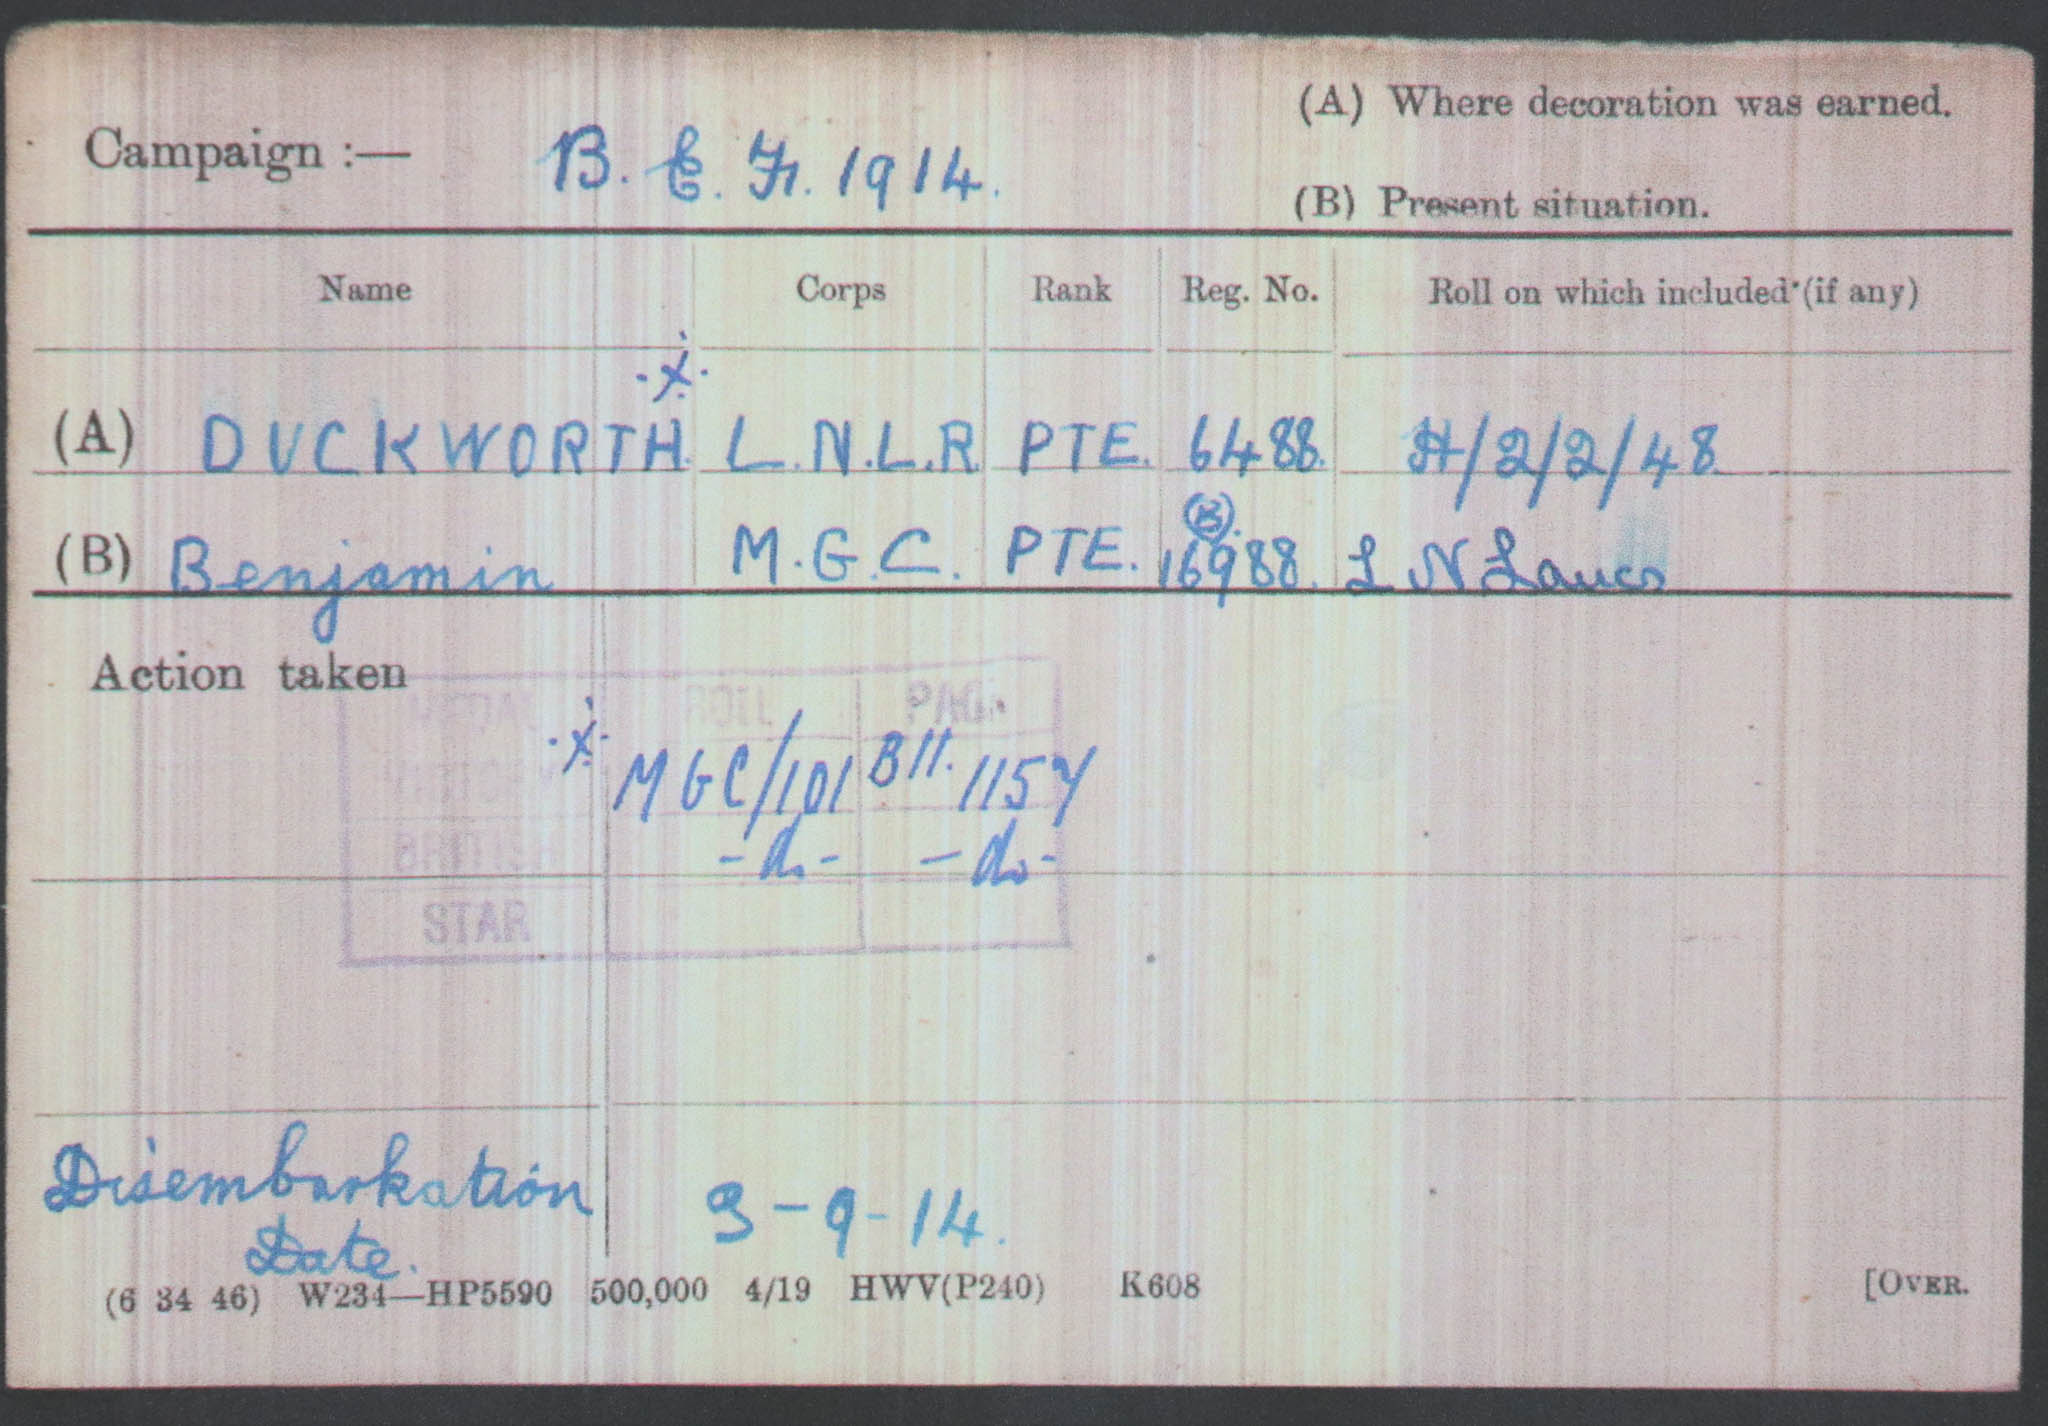 Campaign :— B. E. F. 1914.
(A) Where decoration was earned.
(B) Present situation.
Name Corps Rank Reg. No. Roll on which included (if any)
·X·
(A) DUCKWORTH. L.N.L.R PTE. 6488. H/2/2/48
(B) Benjamin M.G.C. PTE. 16988. (B) L N Lancs
Action taken
MEDAL ROLL PAGE
·X· VICTORY MGC/101 B11. 1157
BRITISH -do- -do-
STAR
Disembarkation
Date. 3-9-14.
(6 34 46) W234—HP5590 500,000 4/19 HWV(P240) K608 [OVER.